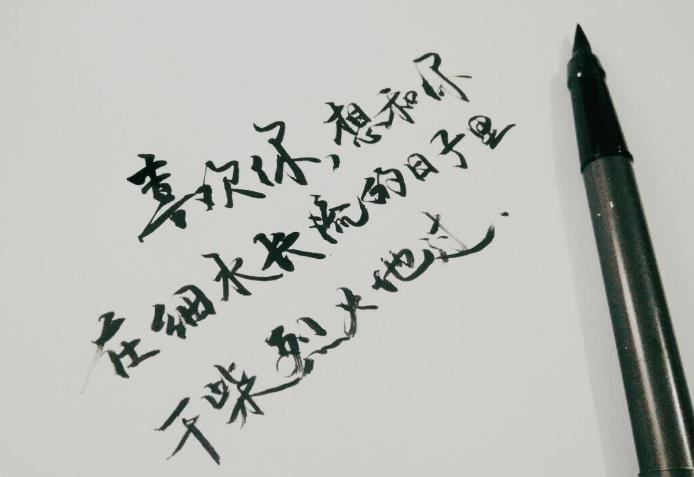 喜欢你,想和你
在细水长流的日子里
干柴烈火地过.